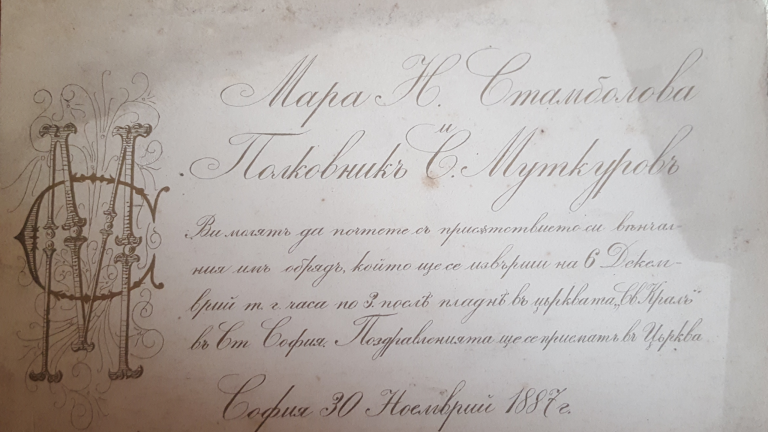 Мара Н. Стамболова
и
Полковникъ С. Муткуровъ
Ви молятъ да почтете съ присѫтствието си вѣнчал-
ния имъ обрядъ, който ще се извърши на 6 Декем-
врий т. г. часа по 3. послѣ пладнѣ въ църквата „Св. Кралъ"
въ Ст София. Поздравленията ще се приематъ въ Църква
София 30 Ноемврий 1887 г.